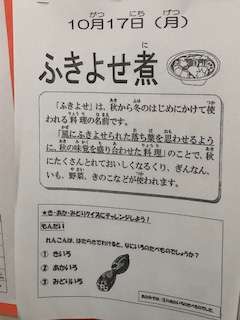 10月17日（月）
ふきよせ煮
「ふきよせ」は、秋から冬のはじめにかけて使
われる料理の名前です。
「風にふきよせられた落ち葉を思わせるよう
に、秋の味覚を盛り合わせた料理」のことで、秋
にたくさんとれておいしくなるくり、ぎんなん、
いも、野菜、きのこなどが使われます。
★き・あか・みどりクイズにチャレンジしよう！
もんだい
れんこんは、はたらきでわけると、なにいろのたべものでしょうか？
① きいろ
② あかいろ
③ みどりいろ